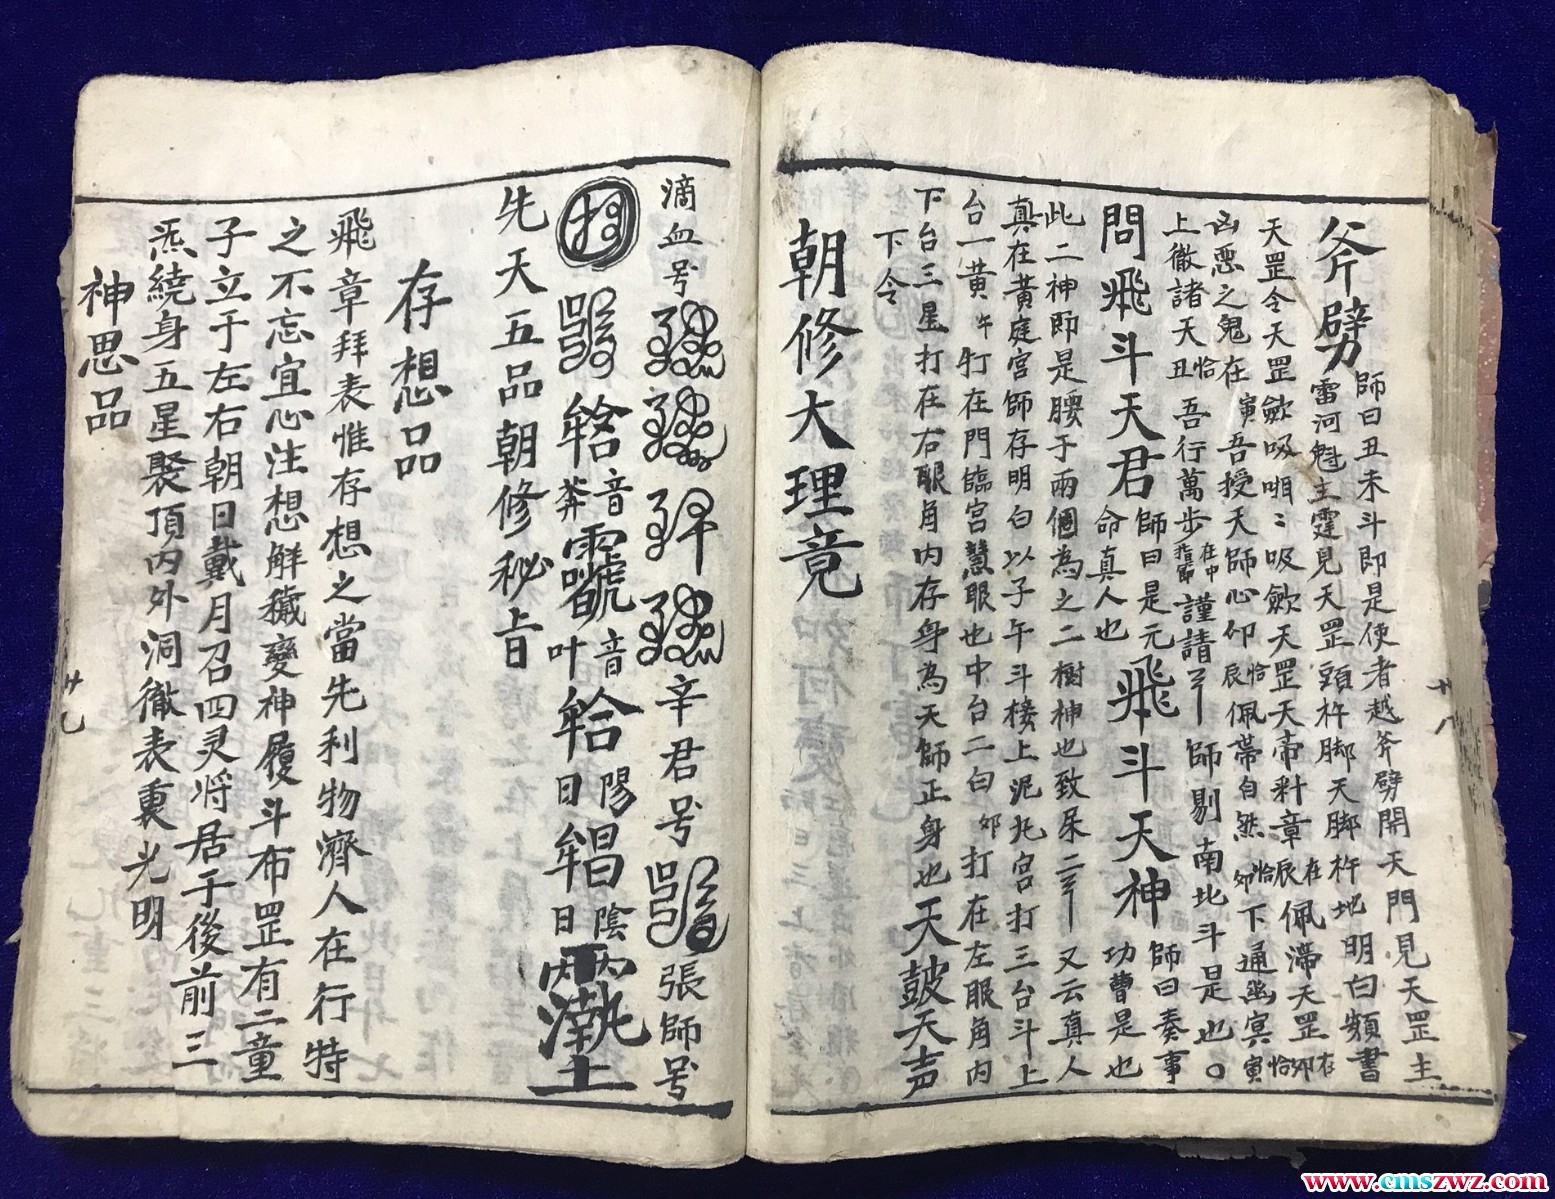 斧劈 師曰丑未斗即是使者越斧劈開天門見天罡主
雷河魁主霆見天罡頭杵脚天脚杵地明白類書
天罡令天罡歛吸吸歛天罡天帝料章辰在佩滯天罡卯在
凶惡之鬼在寅吾授天師心印辰恰佩帯自然卯恰下通幽冥寅恰
上徹諸天丑恰吾行萬步在中指節謹請 師剔南北斗是也
問飛斗天君師曰是元命真人也飛斗天神師曰奏事功曹是也
此二神即是腰于兩個為之二樹神也致呆二 又云真人
真在黃庭宮師存明白以子午斗楼上泥丸宮打三台斗上
台一黄午打在門臨宮慧眼也中台二白卯打在左眼角内
下台三星打在右眼角内存身為天師正身也天鼓天声
下令
朝修大理竟
廿八
滴血号 辛君号 張師号
音 音 叶 日 陽 日 陰
先天五品朝修秘旨
存想品
飛章拜表惟存想之當先利物濟人在行特
之不忘宜心注想解穢變神履斗布罡有二童
子立于左右朝日戴月召四灵将居于後前三
炁繞身五星聚頂内外洞徹表裏光明
神思品
廿七
www.cmszwz.com